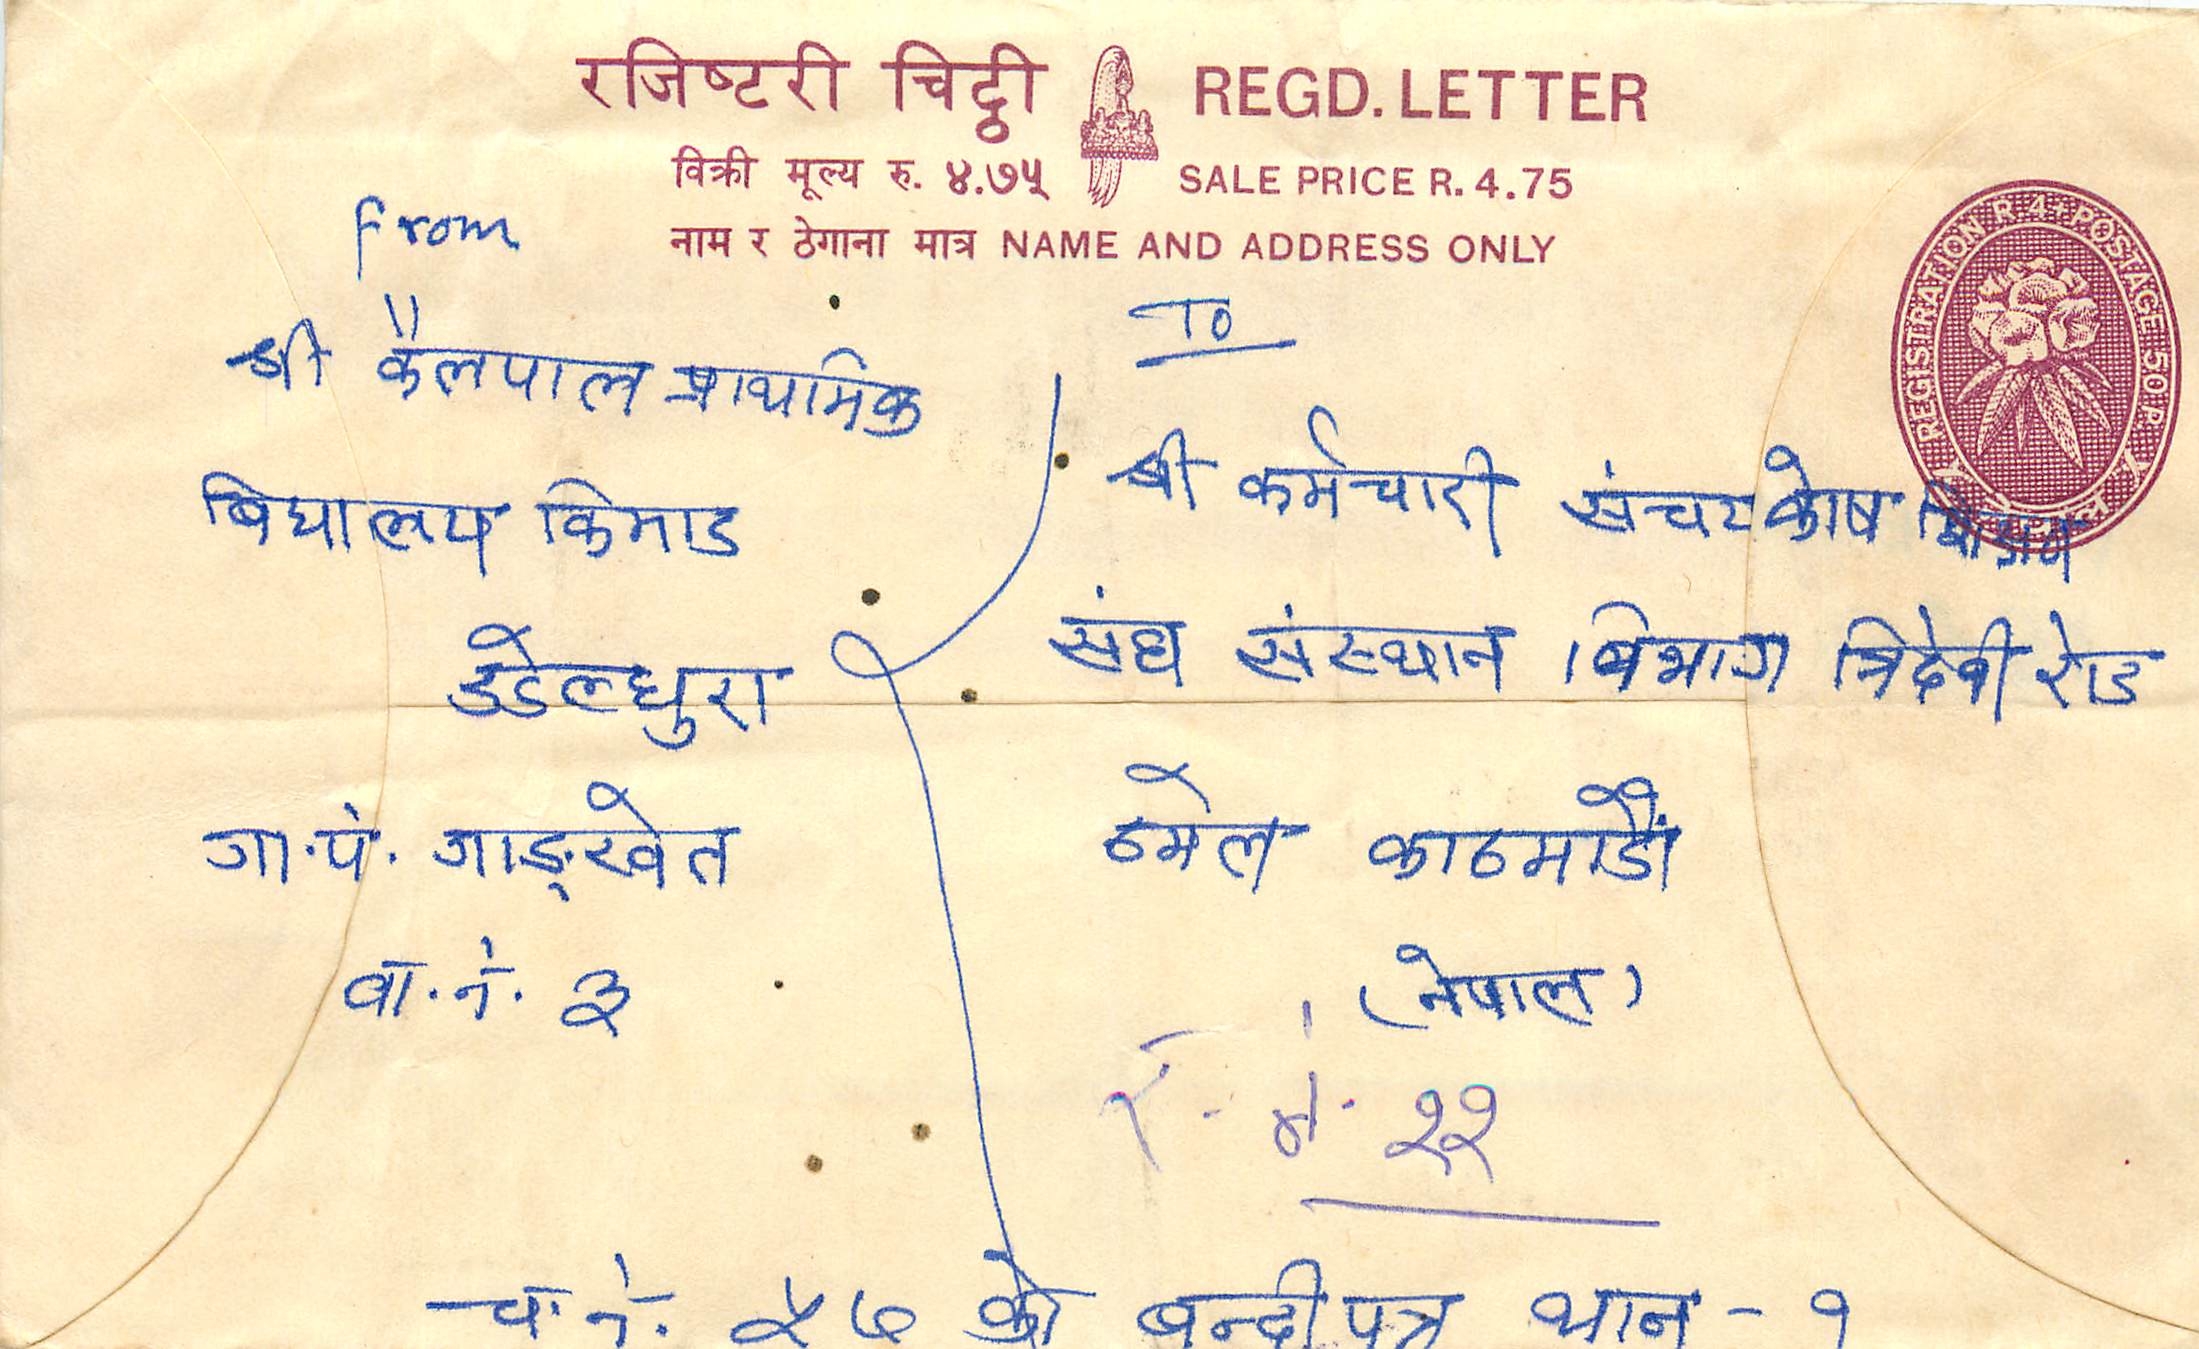 रजिष्टरी चिट्ठी REGD. LETTER
विक्री मूल्य रु. ४.७५ SALE PRICE R. 4.75
नाम र ठेगाना मात्र NAME AND ADDRESS ONLY
REGISTRATION R. 4 + POSTAGE 50 P.
नेपाल
From
श्री कैलपाल प्राथमिक
बिद्यालय किमाड
डडेल्धुरा
गा.पं. गाङ्खेत
वा.नं. ३
To
श्री कर्मचारी संचयकोष
संघ संस्थान बिभाग त्रिदेवी रोड
ठमेल काठमाडौं
(नेपाल)
र. नं. ११
च.नं. ५७ को बन्दीपत्र थान - १